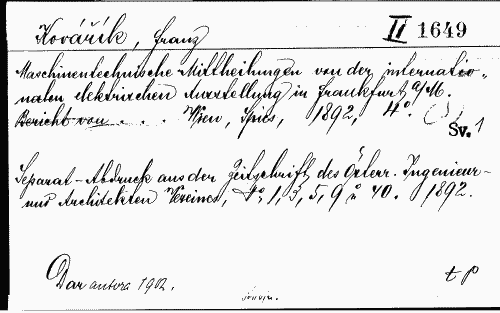 Kovářík, Franz
II 1649
Maschinentechnische Mittheilungen von der internatio-
nalen elektrischen Ausstellung in Frankfurt a/M.
Bericht von . . . Wien, Spies, 1892, 4°.
Sv. 1
Separat-Abdruck aus der Zeitschrift des Österr. Ingenieur-
und Architekten Vereines, N°. 1, 3, 5, 9 u 40. 1892.
Dar autora 1902.
t p